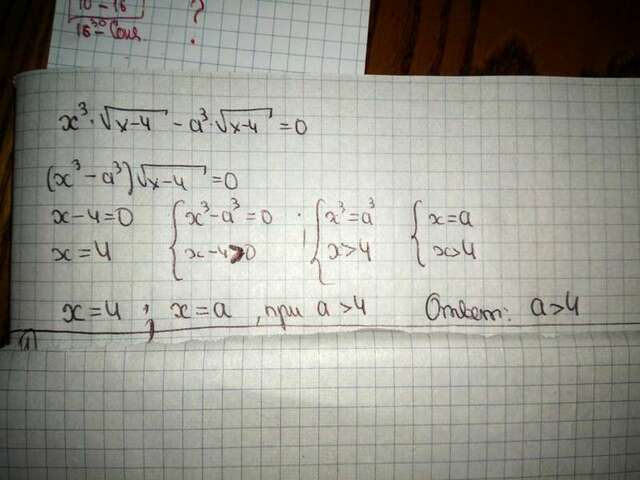 x³·√x-4 - a³√x-4 = 0
(x³-a³)√x-4 = 0
x-4=0 { x³-a³=0 { x³=a³ { x=a
x=4 { x-4>0 { x>4 { x>4
x=4, x=a, при a>4 Ответ: a>4
10-16
?